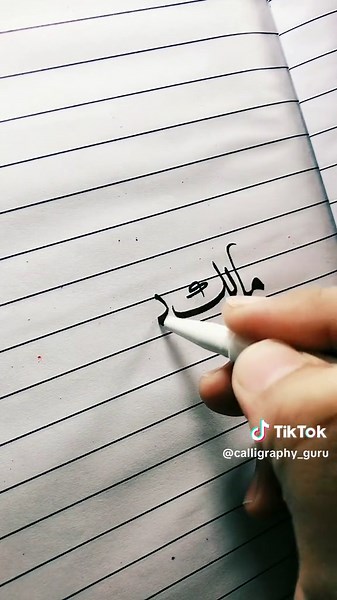 مالك
TikTok
@calligraphy_guru